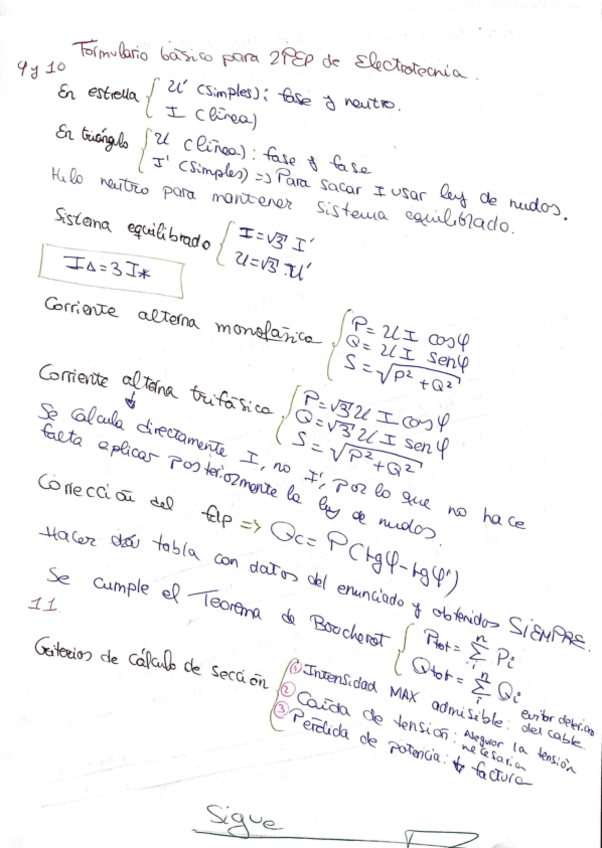 Formulario básico para 2PEP de Electrotecnia.
9 y 10
En estrella { U' (simples): fase y neutro.
I (línea)
En triángulo { U (línea): fase y fase
I' (simples) => Para sacar I usar ley de nudos.
Hilo neutro para mantener sistema equilibrado.
Sistema equilibrado { I = √3 I'
U = √3 U'
I∆ = 3 I*
Corriente alterna monofásica { P = U I cosφ
Q = U I senφ
S = √P² + Q²
Corriente alterna trifásica { P = √3 U I cosφ
Q = √3 U I senφ
S = √P² + Q²
Se calcula directamente I, no I', por lo que no hace
falta aplicar posteriormente la ley de nudos.
Corrección del fdp => Qc = P(tgφ - tgφ')
Hacer tabla con datos del enunciado y obtenidos SIEMPRE.
Se cumple el Teorema de Boucherot { Ptot = Σ Pi
Qtot = Σ Qi
11
Criterios de cálculo de sección { ① Intensidad MAX admisible: evitar deterioro del cable.
② Caída de tensión: Asegurar la tensión necesaria
③ Pérdida de potencia: factura
Sigue